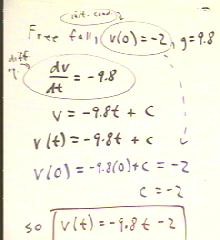 init. cond
Free fall, v(0) = -2, g = 9.8
diff
dv/dt = -9.8
v = -9.8t + c
v(t) = -9.8t + c
v(0) = -9.8(0) + c = -2
c = -2
so v(t) = -9.8t - 2